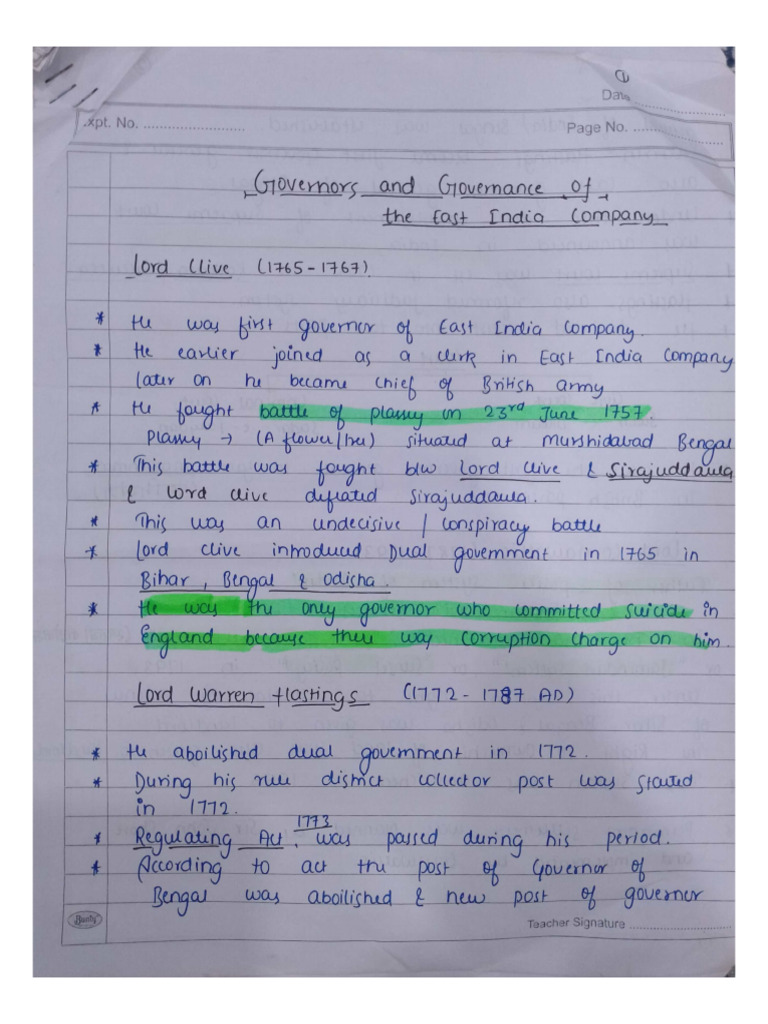 ①
Date
Expt. No.
Page No.
Governors and Governance of
the East India Company
Lord Clive (1765-1767)
* He was first governor of East India Company.
* He earlier joined as a clerk in East India Company
later on he became chief of British army
* He fought battle of plassy on 23rd June 1757.
Plassy → (A flower/tree) situated at Murshidabad Bengal
* This battle was fought b/w Lord Clive & Sirajuddaula
& Lord Clive defeated Sirajuddaula.
* This was an undecisive / conspiracy battle
* Lord Clive introduced Dual government in 1765 in
Bihar, Bengal & Odisha
* He was the only governor who committed suicide in
England because there was corruption charge on him.
Lord Warren Hastings (1772-1787 AD)
* He aboilished dual government in 1772.
* During his rule district collector post was started
in 1772.
* Regulating Act, 1773 was passed during his period.
* According to act the post of Governor of
Bengal was aboilished & new post of governor
Teacher Signature